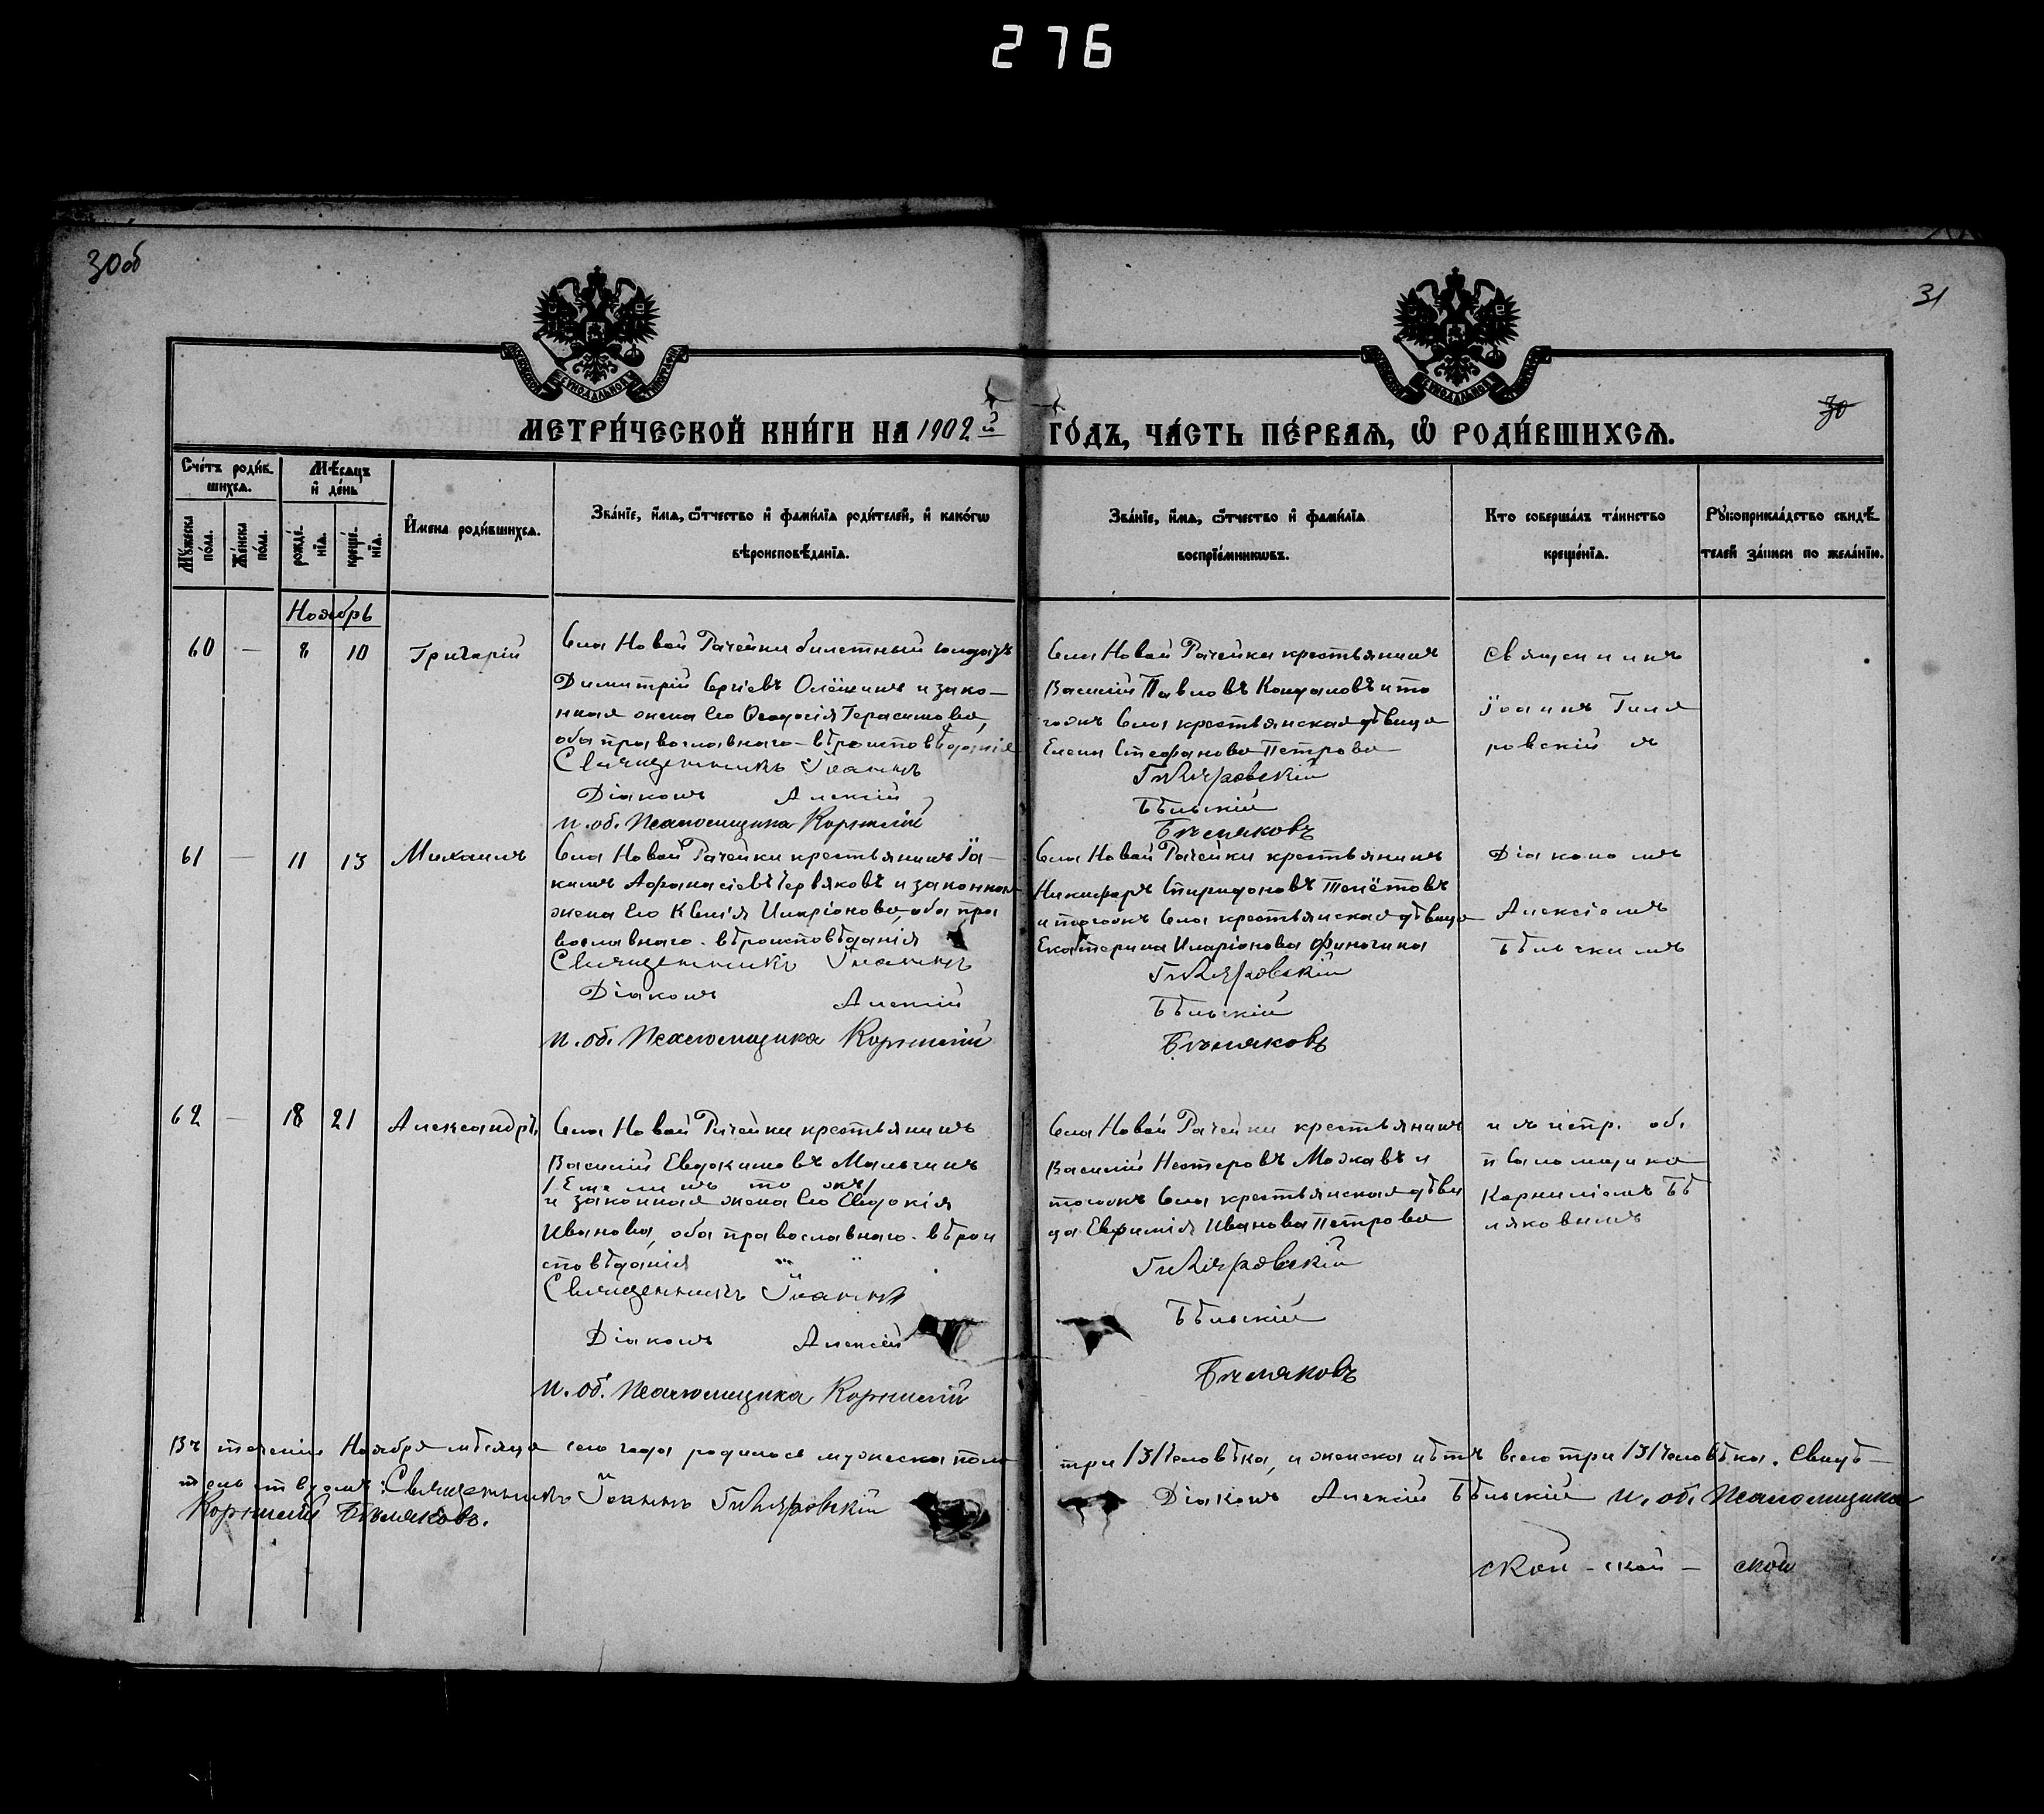 276
30об
31
30
МЕТРИ́ЧЕСКОЙ КНИ́ГИ НА 1902 3 ГО́ДЪ, ЧА́СТЬ ПЕ́РВАѦ, Ѡ҆ РОДИ́ВШИХСѦ.
Сче́тъ роди́в-
шихсѧ.
Мꙋ́жеска
по́ла.
Же́нска
по́ла.
Мѣ́сѧцъ
и҆ де́нь
рожде́-
нїѧ.
креще́-
нїѧ.
И҆мена роди́вшихсѧ.
Зва́нїе, и҆́мѧ, ѻ҆́тчество и҆ фами́лїѧ роди́телей, и҆ како́гѡ
вѣроисповѣ́данїѧ.
Зва́нїе, и҆́мѧ, ѻ҆́тчество и҆ фами́лїѧ
воспрїе́мникѡвъ.
Кто соверша́лъ та́инство
креще́нїѧ.
Рꙋкоприкла́дство свидѣ́-
телей за́писи по жела́нїю.
Ноябрь
60 — 8 10 Григорій
Села Новой Рачейки билетный солдатъ
Димитрій Сергіевъ Олёшинъ и зако-
нная жена его Ѳеодосія Герасимова,
оба православнаго вѣроисповѣданія
Священникъ Іоаннъ
Діаконъ Алексій
и. об. Псаломщика Корнилій
Села Новой Рачейки крестьянинъ
Василій Павловъ Кондаловъ и то
гожъ села крестьянская дѣвица
Елена Стефанова Петрова
Гиляровскій
Бѣльскій
Бѣляковъ
Священникъ
Іоаннъ Гиля
ровскій
61 — 11 13 Михаилъ
Села Новой Рачейки крестьянинъ Іа-
кимъ Аѳанасіевъ Червяковъ и законная
жена его Ксенія Иларіонова, оба пра
вославнаго вѣроисповѣданія
Священникъ Іоаннъ
Діаконъ Алексій
и. об. Псаломщика Корнилій
Села Новой Рачейки крестьянинъ
Никифоръ Спиридоновъ
и тогожъ села крестьянская дѣвица
Екатерина Иларіонова Финогина
Гиляровскій
Бѣльскій
Бѣляковъ
Діакономъ
Алексіемъ
Бѣльскимъ
62 — 18 21 Александръ
Села Новой Рачейки крестьянинъ
Василій Евдокимовъ Мальгинъ
/Емелинъ то жъ/
и законная жена его Евдокія
Иванова, оба православнаго вѣрои
сповѣданія
Священникъ Іоаннъ
Діаконъ Алексій
и. об. Псаломщика Корнилій
Села Новой Рачейки крестьянинъ
Василій Нестеровъ Мохавъ и
тогожъ села крестьянская дѣви
ца Евфимія Иванова Петрова
Гиляровскій
Бѣльскій
Бѣляковъ
об.
псаломщика
Корниліемъ Бѣ
ляковымъ
Въ теченіи Ноября мѣсяца сего года родилося мужеска пола три /3/ человѣка, и женска нѣтъ всего три /3/ человѣка. Свидѣ-
тельствуемъ: Священникъ Іоаннъ Гиляровскій Діаконъ Алексій Бѣльскій и. об. Псаломщика
Корнилій Бѣляковъ.
ской - ской - ской